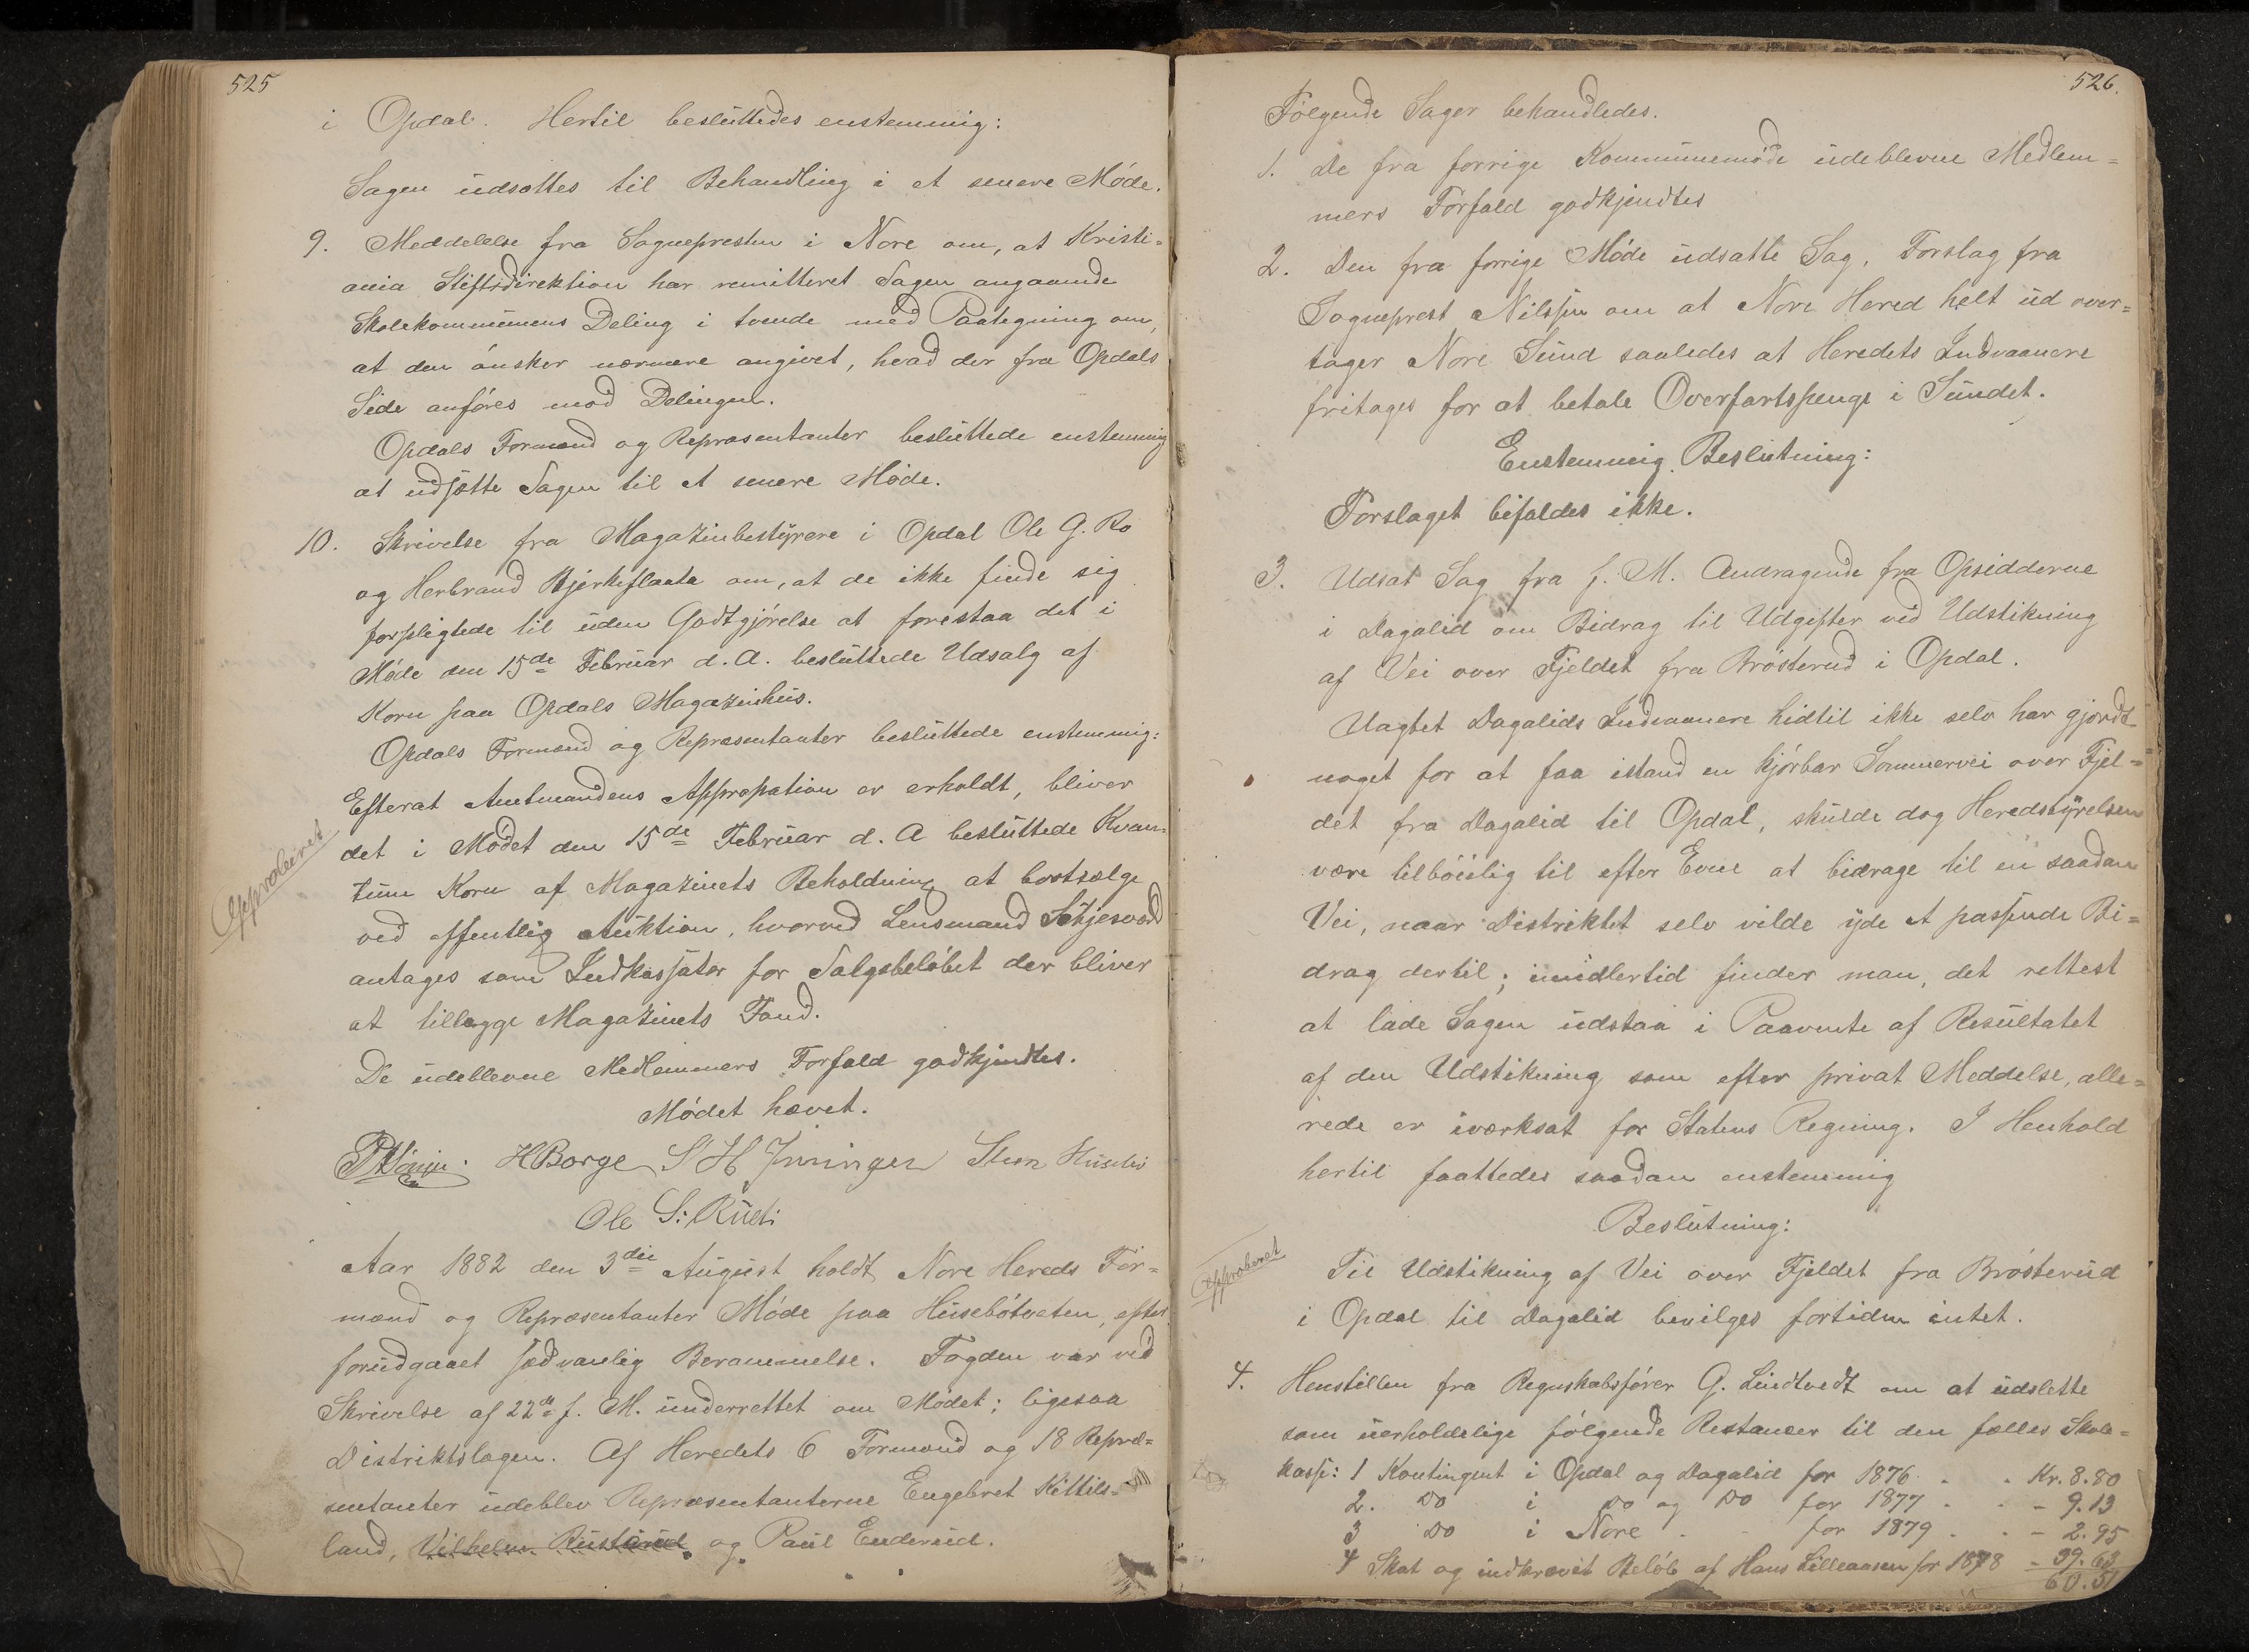 525
i Opdal. Hertil besluttedes enstemmig:
Sagen udsættes til Behandling i et senere Møde.
9. Meddelelse fra Sognepresten i Nore om, at Kristi=
ania Stiftsdirektion har remitteret Sagen angaaende
Skolekommunens Deling i tvende med Paategning om,
at den ønsker nærmere angivet, hvad der fra Opdals
Side anføres mod Delingen.
Opdals Formænd og Repræsentanter besluttede enstemmig
at udsætte Sagen til et senere Møde.
10. Skrivelse fra Magazinbestyrere i Opdal Ole G. Ro
og Herbrand Bjerkeflaata om, at de ikke finde sig
forpligtede til uden Godtgjørelse at forestaa det i
Møde den 15de Februar d. A. besluttede Udsalg af
Korn paa Opdals Magazinhus.
Opdals Formænd og Repræsentanter besluttede enstemmig:
Efterat Amtmandens Appropation er erholdt, bliver
det i Mødet den 15de Februar d. A besluttede Kvan=
tum Korn af Magazinets Beholdning at bortsælge
Approberet
ved offentlig Auktion, hvorved Lensmand
antages som Indkassator for Salgsbeløbet der bliver
at tillægge Magazinets Fond.
De udeblevne Medlemmers Forfald godkjendtes.
Mødet hævet.
HBorge S H Jnninger Sten
Ole S: Rudi
Aar 1882 den 3die August holdt Nore Hereds For=
mænd og Repræsentanter Møde paa Husebøtveten, efter
forudgaaet sædvanlig Berammelse. Fogden var ved
Skrivelse af 22de f. M. underrettet om Mødet; ligesaa
Distriktslægen. Af Heredets 6 Formænd og 18 Repræ=
sentanter udeblev Repræsentanterne Engebret Kittils=
land, Vilhelm Rustand og Paul Enderud.
526.
Følgende Sager behandledes.
1. De fra forrige Kommunemøde udeblevne Medlem=
mers Forfald godkjendtes
2. Den fra forrige Møde udsatte Sag, Forslag fra
Sogneprest Nilssen om at Nore Hered helt ud over=
tager Nore Sund saaledes at Heredets Indvaanere
fritages for at betale Overfartspenge i Sundet.
Enstemmig Beslutning:
Forslaget bifaldes ikke.
3. Udsat Sag fra f. M. Andragende fra Opsidderne
i Dagalid om Bidrag til Udgifter ved Udstikning
af Vei over Fjeldet fra Brøsterud i Opdal.
Uagtet Dagalids Indvaanere hidtil ikke selv har gjordt
noget for at faa istand en kjørbar Sommervei over Fjel=
det fra Dagalid til Opdal, skulde dog Heredstyrelsen
være tilbøielig til efter Evne at bidrage til en saadan
Vei, naar Distriktet selv vilde yde et passende Bi=
drag dertil; imidlertid finder man, det rettest
at lade Sagen udstaa i Paavente af Resultatet
af den Udstikning som efter privat Meddelse, alle=
rede er iværksat for Statens Regning. I Henhold
hertil faattedes saadan enstemmig
Beslutning:
Approberet
Til Udstikning af Vei over Fjeldet fra Brøsterud
i Opdal til Dagalid bevilges fortiden intet.
4. Henstillen fra Regnskabsfører G. Lindtvedt om at udslette
som uerholdelige følgende Restancer til den fælles Skole=
kasse: 1 Kontingent i Opdal og Dagalid for 1876 . . Kr. 8.80
2. Do i Do og Do for 1877 . . - 9.13
3 Do i Nore . - for 1879 . . - 2.95
4 Skat og indkrævet Beløb af Hans Lilleaasen for 1878 - 39.63
60.51